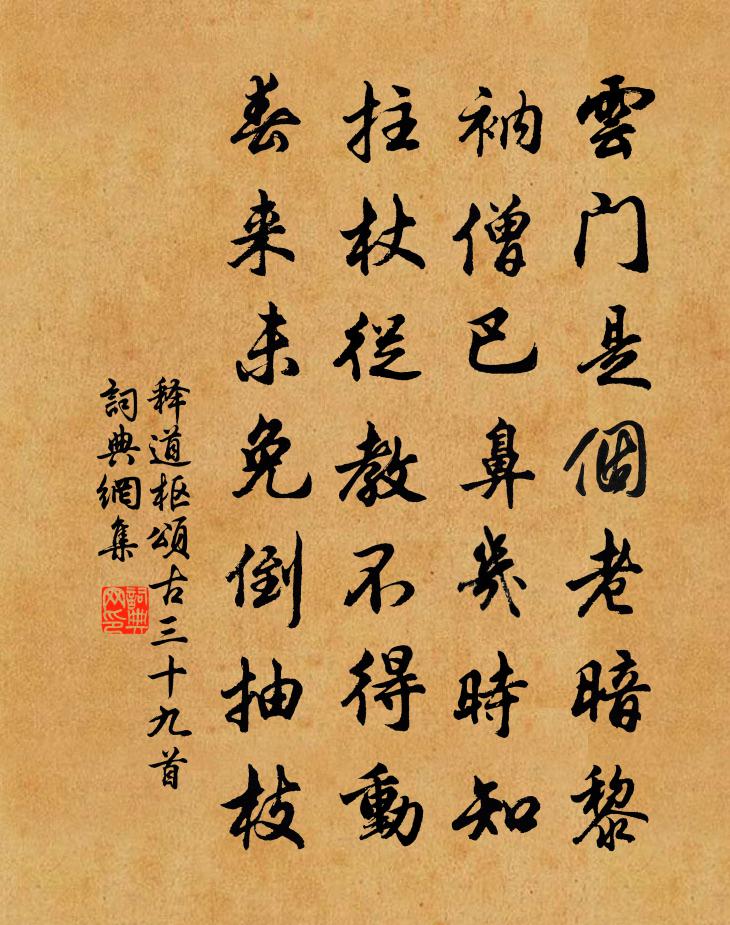 雲门是個老暗黎
衲僧巴鼻幾時知
拄杖從教不得動
春来未免倒抽枝
释道枢頌古三十九首
詞典網集
詞典网印